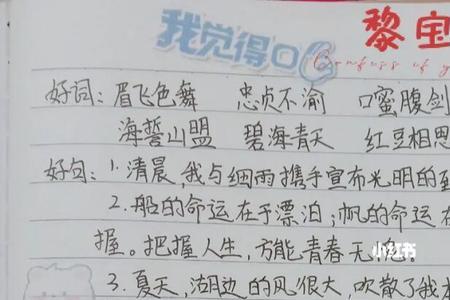 我觉得 黎宝
好词：眉飞色舞 忠贞不渝 口蜜腹剑
海誓山盟 碧海青天 红豆相思
好句：1.清晨，我与细雨携手宣布光明的到
2.船的命运在于漂泊；帆的命运在
握。把握人生，方能青春无悔。
小红书
3.夏天，湖边的风很大，吹散了我